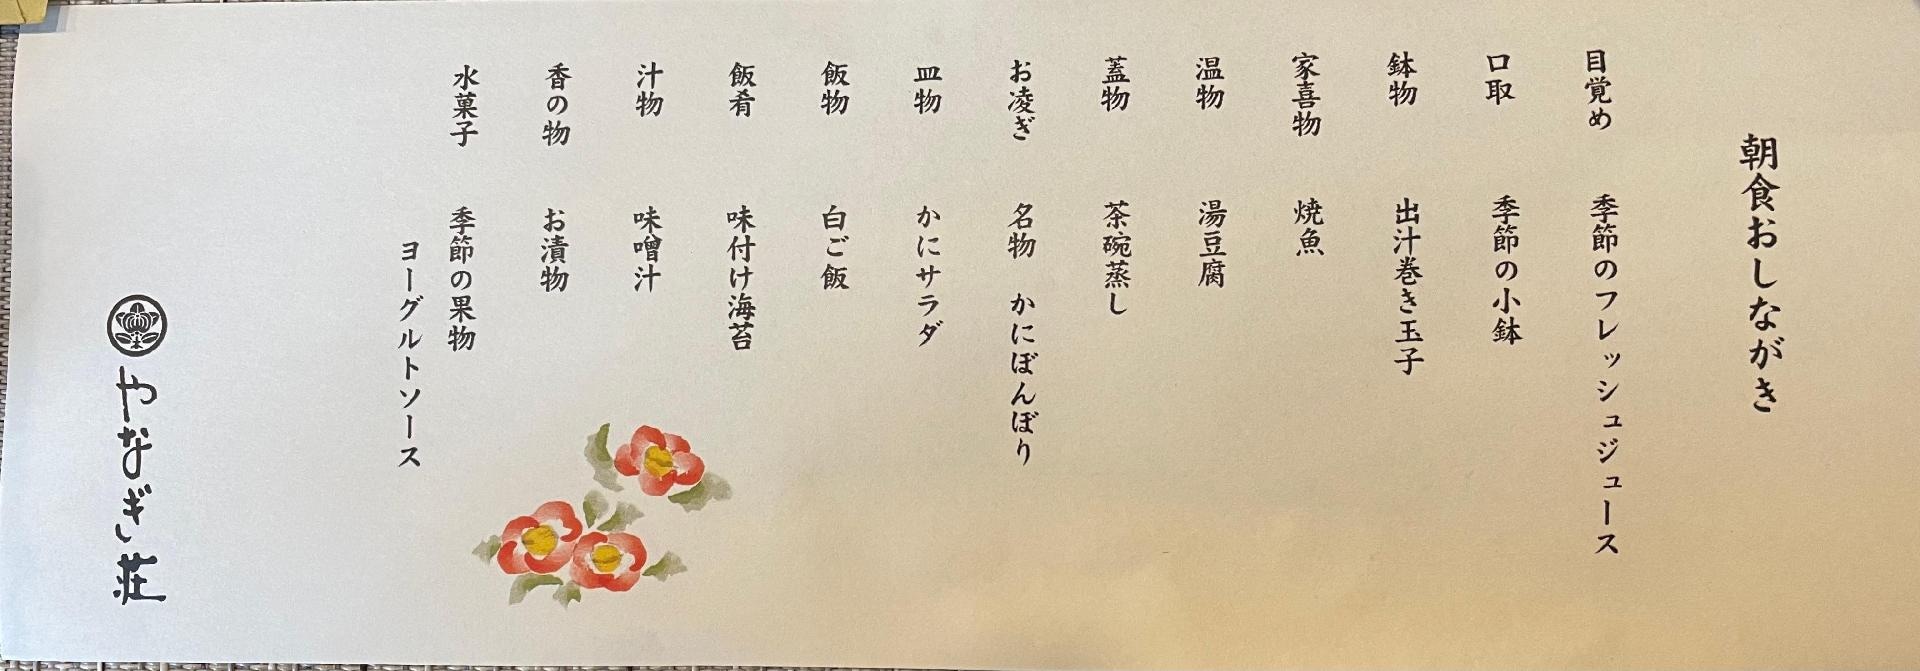 朝食おしながき
目覚め　季節のフレッシュジュース
口取　季節の小鉢
鉢物　出汁巻き玉子
家喜物　焼魚
温物　湯豆腐
蓋物　茶碗蒸し
お凌ぎ　名物　かにぼんぼり
皿物　かにサラダ
飯物　白ご飯
飯肴　味付け海苔
汁物　味噌汁
香の物　お漬物
水菓子　季節の果物
ヨーグルトソース
やなぎ荘